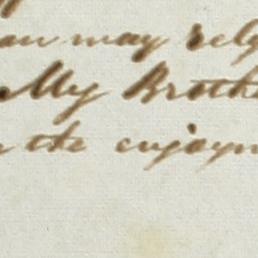 may rely
My Brothe
the enjoym